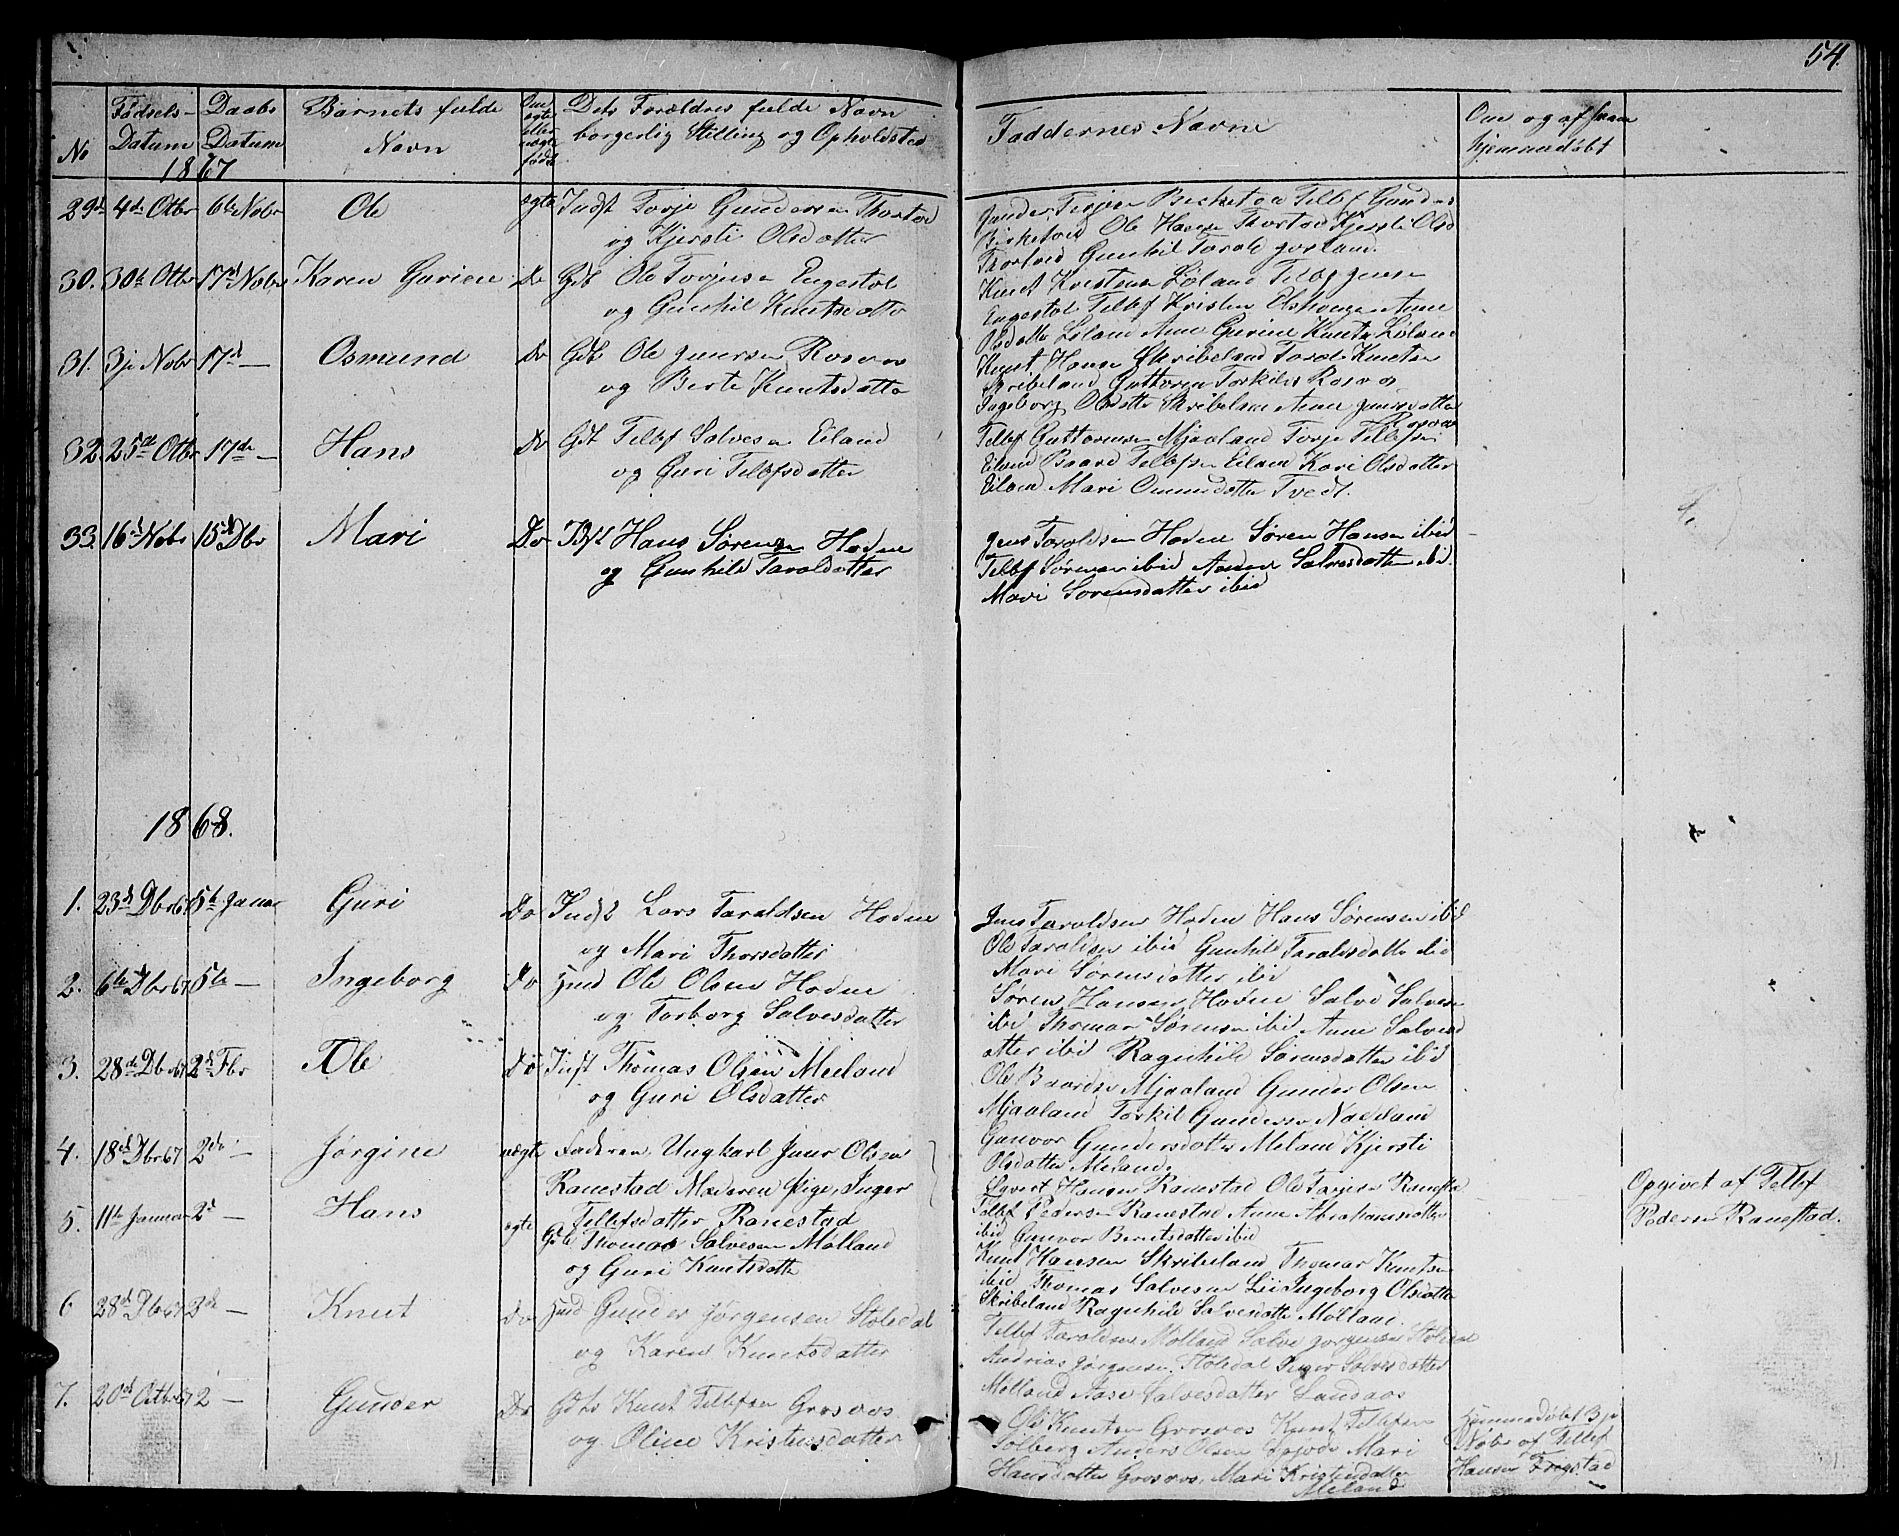 54.
No
Fødsels-
Datum
Daabs
Datum
1867
Barnets fulde
Navn
Om
ægte
eller
uægte
født
Dets Forældres fulde Navn
borgerlig Stilling og Opholdsted
Faddernes Navne
Om og af hvem
hjemmedøbt
29de 4de Otbr 6te Nobr Ole ægte Indst Torje Gundersen Thorstad
og Kjersti Olsdatter
Birketved Ole Hansen Thorstad Kjersti Olsd
Thorstad Gunhil Tarald
30. 30te Otbr 17de Nobr Karen Gurine Do Gdb Ole Torjusen Engestøl
og Gunhil Knutsdatte
Knut Kristensen Løland Tellef Jensen
Engestøl Tellef Kristen Anne
Olsdatte Løland Ane Gurine Knuts Løland
31. 3je Nobr 17de — Osmund Do Gdb Ole Jensen Rosaas
og Berte Knutsdatte
Knut Hansen Skribeland Tarald Knutsen
Skribeland Guttorm Torkils Rosaas
Ingeborg Olsdatte Skribeland Anne Jensdatte
Rosaas
32. 25de Otbr 17de — Hans Do Gdb Tellef Salvesen Eiland
og Guri Tellefsdatter
Tellef Guttormsen Mjaaland Torje Tellefsen
Eiland Baard Tellefsen Eiland Kari Olsdatter
Eiland Mari Omundsdatte Tvedt.
33. 16de Nobr 15de Dbr Mari Do Hans Sørensen Hodne
og Gunhild Taraldsdatter
Jens Taraldsen Hodne Søren Hansen ibid
Tellef Sørensen ibid Salvesdatter ibid
Mari Sørensdatter ibid
1868.
1. 23de Dbr 67 5te Januar Guri Do Indst Lars Taraldsen Hodne
og Mari Thorsdatter
Jens Taraldsen Hodne Hans Sørensen ibid
Ole Taraldsen ibid Gunhild Taraldsdatte ibid
Mari Sørensdatter ibid
2. 6te Dbr 67 5te — Ingeborg Do Hmd Ole Olsen Hodne
og Torborg Salvesdatter
Søren Hansen Hodne Salve Salvesen
ibid Thomas Sørensen ibid Anne Salvesd
atter ibid Ragnhild Sørensdatter ibid
3. 28de Dbr 67 2de Fbr Ole Do Indst Thomas Olsen Meeland
og Guri Olsdatter
Ole Baardsen Mjaaland Gunder Olsen
Mjaaland Torkil Gundersen
Gunvor Gundersdatter Meland Kjersti
Olsdatter Meland.
4. 18de Dbr 67 2do — Jørgine uægte Faderen Ungkarl Jens Olsen
Ranestad Moderen Pige Inger
Tellefsdatter Ranestad
Hansen Ranestad Ole Tarjesen Ranesta
Tellef Pedersen Ranestad Anne Abrahamsdatter
ibid Gunvor Berntsdatter ibid
Opgivet af Tellef
Pedersen Ranestad.
5. 11te Januar 2de — Hans ægte Gdb Thomas Salvesen Mølland
og Guri Knutsdatte
Knut Hansen Skribeland Thomas Knutsen
ibid Thomas Salvesen Lii Ingeborg Olsdatte
Skribeland Ragnhild Salvesdatte Mølland.
6 28de Dbr 67 2de — Knut Do Hmd Gunder Jørgensen Støledal
og Karen Knutsdatter
Tellef Taraldsen Mølland Salve Jørgensen Støledal
Andrias Jørgensen Støledal Inger Salvesdatter
Mølland Aase Salvesdatter Landaas
7. 20de Octbr 67 2 — Gunder Do Gdb Knut Tellefsen Grosaas
og Oline Kristensdatter
Ole Knutsen Grosaas Knut Tellefsen
Solberg Anders Olsen Mari
Hansdatter Grosaas, Mari Kristensdatter
Meland
Hjemmedøbt 3je
Nobr af Tellef
Hansen